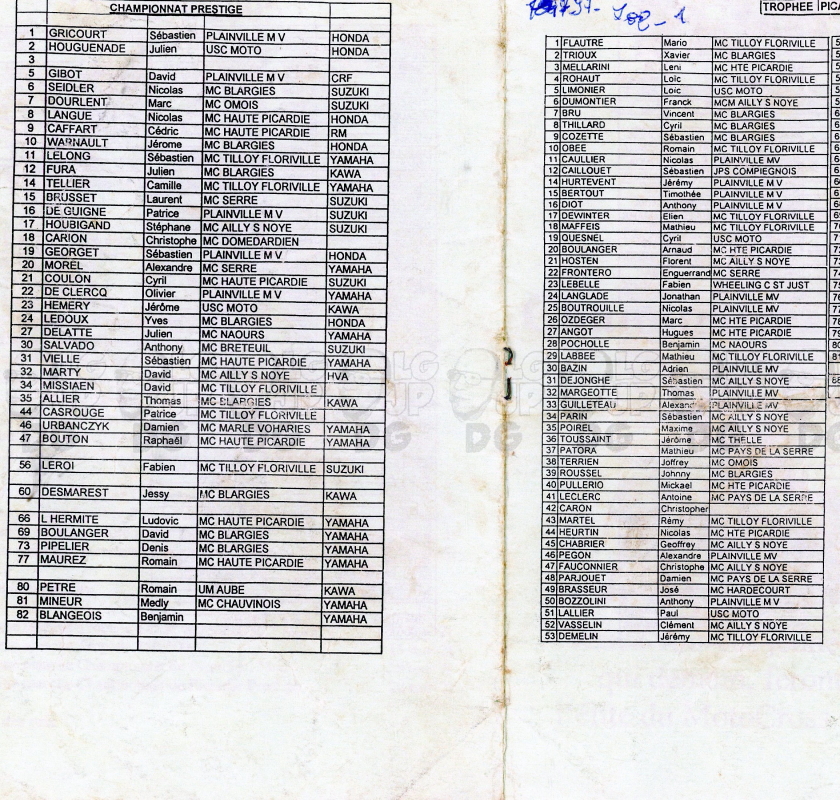 CHAMPIONNAT PRESTIGE
1 GRICOURT Sébastien PLAINVILLE M V HONDA
2 HOUGUENADE Julien USC MOTO HONDA
3
5 GIBOT David PLAINVILLE M V CRF
6 SEIDLER Nicolas MC BLARGIES SUZUKI
7 DOURLENT Marc MC OMOIS SUZUKI
8 LANGUE Nicolas MC HAUTE PICARDIE HONDA
9 CAFFART Cédric MC HAUTE PICARDIE RM
10 WARNAULT Jérome MC BLARGIES HONDA
11 LELONG Sébastien MC TILLOY FLORIVILLE YAMAHA
12 FURA Julien MC BLARGIES KAWA
14 TELLIER Camille MC TILLOY FLORIVILLE YAMAHA
15 BRUSSET Laurent MC SERRE SUZUKI
16 DE GUIGNE Patrice PLAINVILLE M V SUZUKI
17 HOUBIGAND Stéphane MC AILLY S NOYE SUZUKI
18 CARION Christophe MC DOMEDARDIEN
19 GEORGET Sébastien PLAINVILLE M V HONDA
20 MOREL Alexandre MC SERRE YAMAHA
21 COULON Cyril MC HAUTE PICARDIE SUZUKI
22 DE CLERCQ Olivier PLAINVILLE M V YAMAHA
23 HEMERY Jérôme USC MOTO KAWA
24 LEDOUX Yves MC BLARGIES HONDA
27 DELATTE Julien MC NAOURS YAMAHA
30 SALVADO Anthony MC BRETEUIL SUZUKI
31 VIELLE Sébastien MC HAUTE PICARDIE YAMAHA
32 MARTY David MC AILLY S NOYE HVA
34 MISSIAEN David MC TILLOY FLORIVILLE
35 ALLIER Thomas MC BLARGIES KAWA
44 CASROUGE Patrice MC TILLOY FLORIVILLE
46 URBANCZYK Damien MC MARLE VOHARIES YAMAHA
47 BOUTON Raphaël MC HAUTE PICARDIE YAMAHA
56 LEROI Fabien MC TILLOY FLORIVILLE SUZUKI
60 DESMAREST Jessy MC BLARGIES KAWA
66 L HERMITE Ludovic MC HAUTE PICARDIE YAMAHA
69 BOULANGER David MC BLARGIES YAMAHA
73 PIPELIER Denis MC BLARGIES YAMAHA
77 MAUREZ Romain MC HAUTE PICARDIE YAMAHA
80 PETRE Romain UM AUBE KAWA
81 MINEUR Medly MC CHAUVINOIS YAMAHA
82 BLANGEOIS Benjamin YAMAHA
TROPHEE
1 FLAUTRE Mario MC TILLOY FLORIVILLE
2 TRIOUX Xavier MC BLARGIES
3 MELLARINI Leni MC HTE PICARDIE
4 ROHAUT Loïc MC TILLOY FLORIVILLE
5 LIMONIER Loic USC MOTO
6 DUMONTIER Franck MCM AILLY S NOYE
7 BRU Vincent MC BLARGIES
8 THILLARD Cyril MC BLARGIES
9 COZETTE Sébastien MC BLARGIES
10 OBEE Romain MC TILLOY FLORIVILLE
11 CAULLIER Nicolas PLAINVILLE MV
12 CAILLOUET Sébastien JPS COMPIEGNOIS
14 HURTEVENT Jérémy PLAINVILLE M V
15 BERTOUT Timothée PLAINVILLE M V
16 DIOT Anthony PLAINVILLE M V
17 DEWINTER Elien MC TILLOY FLORIVILLE
18 MAFFEIS Mathieu MC TILLOY FLORIVILLE
19 QUESNEL Cyril USC MOTO
20 BOULANGER Arnaud MC HTE PICARDIE
21 HOSTEN Florent MC AILLY S NOYE
22 FRONTERO Enguerrand MC SERRE
23 LEBELLE Fabien WHEELING C ST JUST
24 LANGLADE Jonathan PLAINVILLE MV
25 BOUTROUILLE Nicolas PLAINVILLE MV
26 OZDEGER Marc MC HTE PICARDIE
27 ANGOT Hugues MC HTE PICARDIE
28 POCHOLLE Benjamin MC NAOURS
29 LABBEE Mathieu MC TILLOY FLORIVILLE
30 BAZIN Adrien PLAINVILLE MV
31 DEJONGHE Sébastien MC AILLY S NOYE
32 MARGEOTTE Thomas PLAINVILLE MV
33 GUILLETEAU PLAINVILLE MV
34 PARIN Sébastien MC AILLY S NOYE
35 POIREL Maxime MC AILLY S NOYE
36 TOUSSAINT Jérôme MC THELLE
37 PATORA Mathieu MC PAYS DE LA SERRE
38 TERRIEN Joffrey MC OMOIS
39 ROUSSEL Johnny MC BLARGIES
40 PULLERIO Mickael MC HTE PICARDIE
41 LECLERC Antoine MC PAYS DE LA SERRE
42 CARON Christopher
43 MARTEL Rémy MC TILLOY FLORIVILLE
44 HEURTIN Nicolas MC HTE PICARDIE
45 CHABRIER Geoffrey MC AILLY S NOYE
46 PEGON Alexandre PLAINVILLE MV
47 FAUCONNIER Christophe MC AILLY S NOYE
48 PARJOUET Damien MC PAYS DE LA SERRE
49 BRASSEUR José MC HARDECOURT
50 BOZZOLINI Anthony PLAINVILLE M V
51 LALLIER Paul USC MOTO
52 VASSELIN Clément MC AILLY S NOYE
53 DEMELIN Jérémy MC TILLOY FLORIVILLE